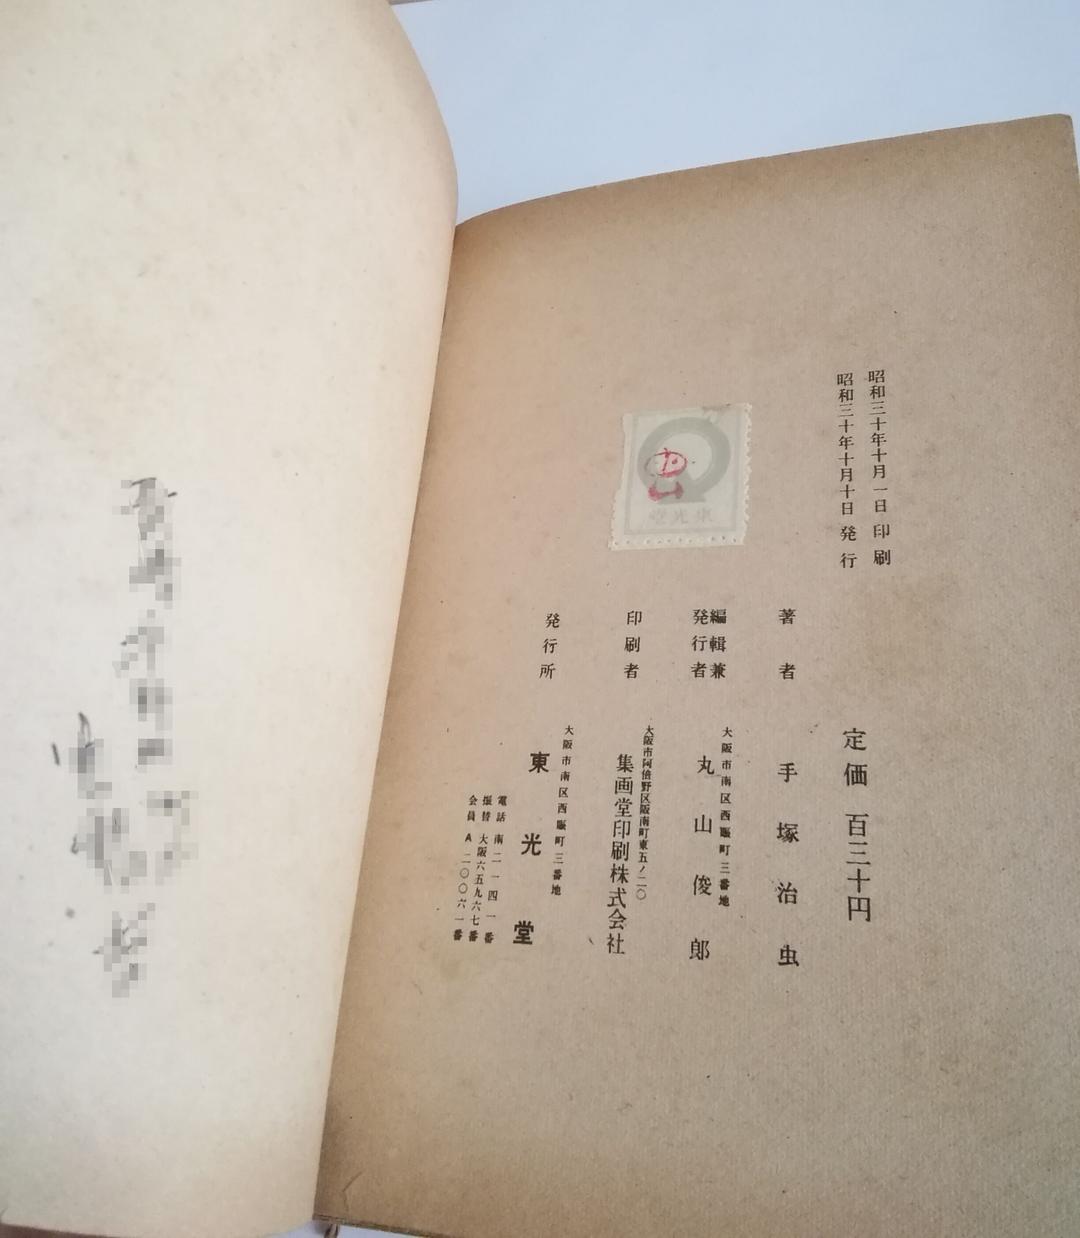 昭和三十年十月一日 印刷
昭和三十年十月十日 発行
定価 百三十円
著者 手塚治虫
編輯兼
発行者
大阪市南区西賑町三番地
丸山俊郎
印刷者
大阪市阿倍野区阪南町東五ノ二〇
集画堂印刷株式会社
発行所
大阪市南区西賑町三番地
東光堂
電話 南二一四一番
振替 大阪六五九六七番
会員 A 二〇〇六一番
東光堂